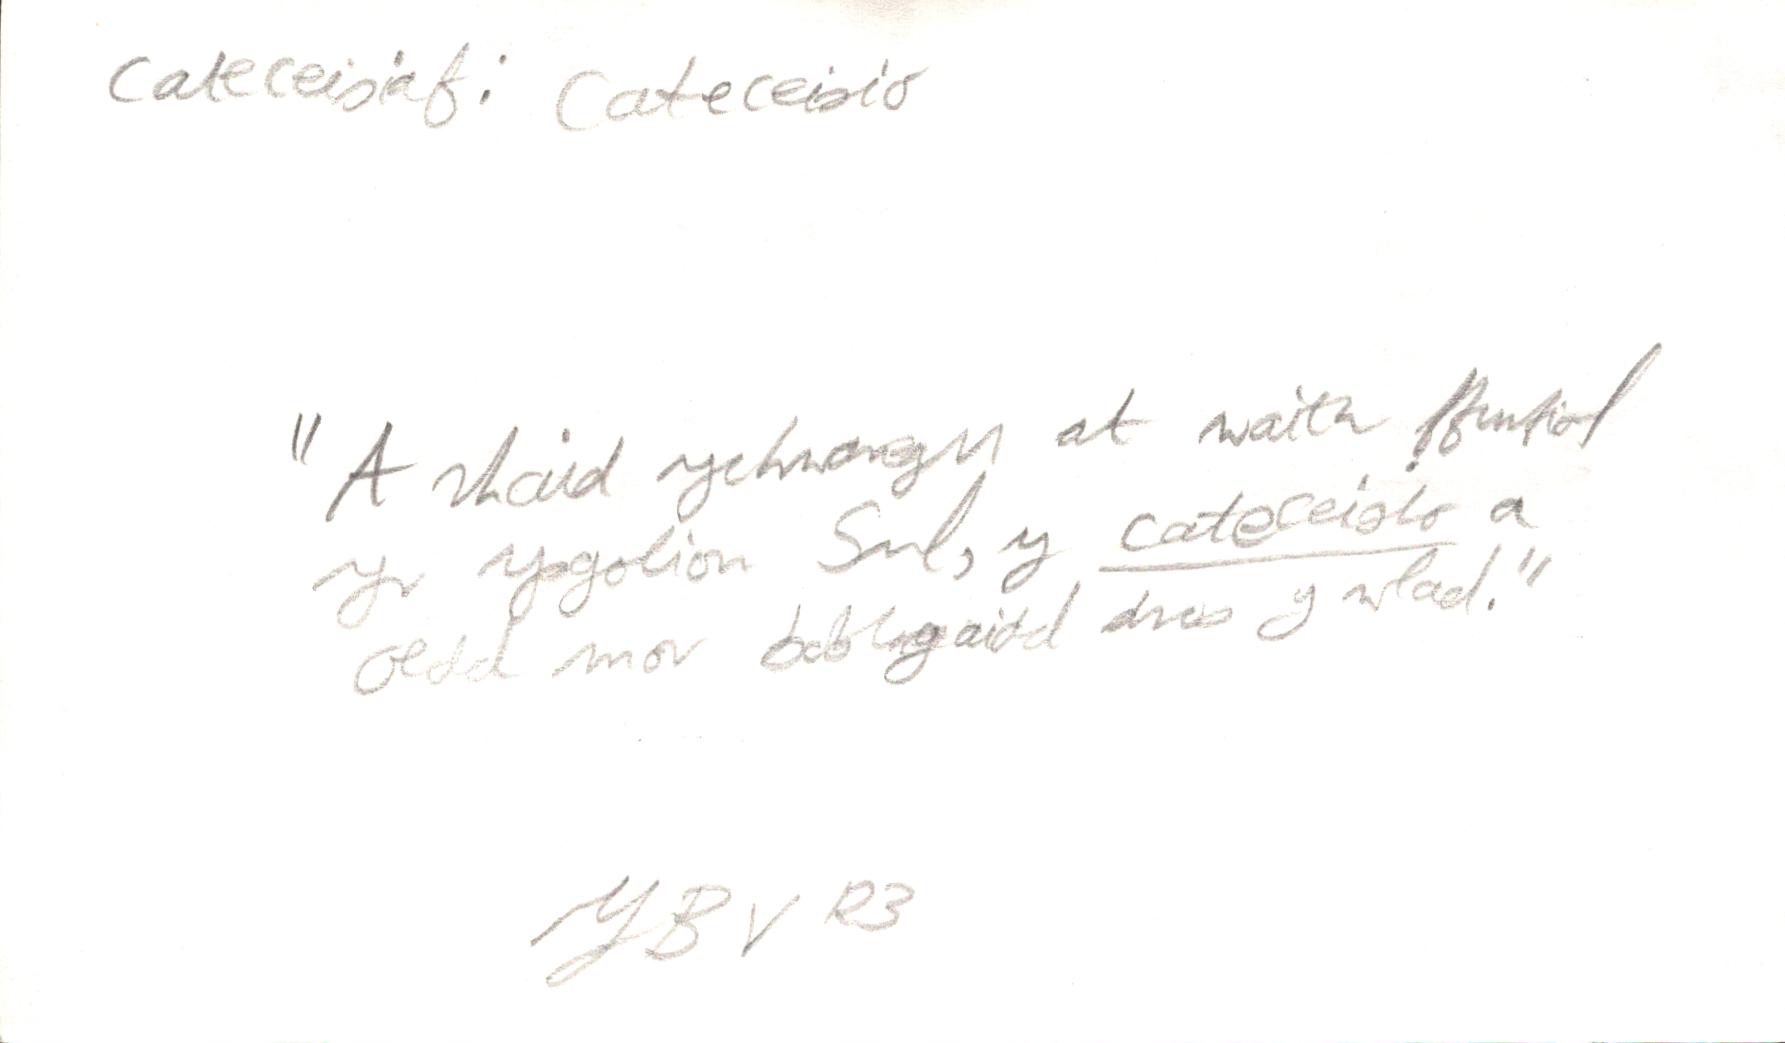 Cateceisiaf: Cateceisio
"A rhaid ychwanegu at waith ffurfiol
yr ysgolion Sul, y cateceisio a
oedd mor boblogaidd dros y wlad."
YB V 123